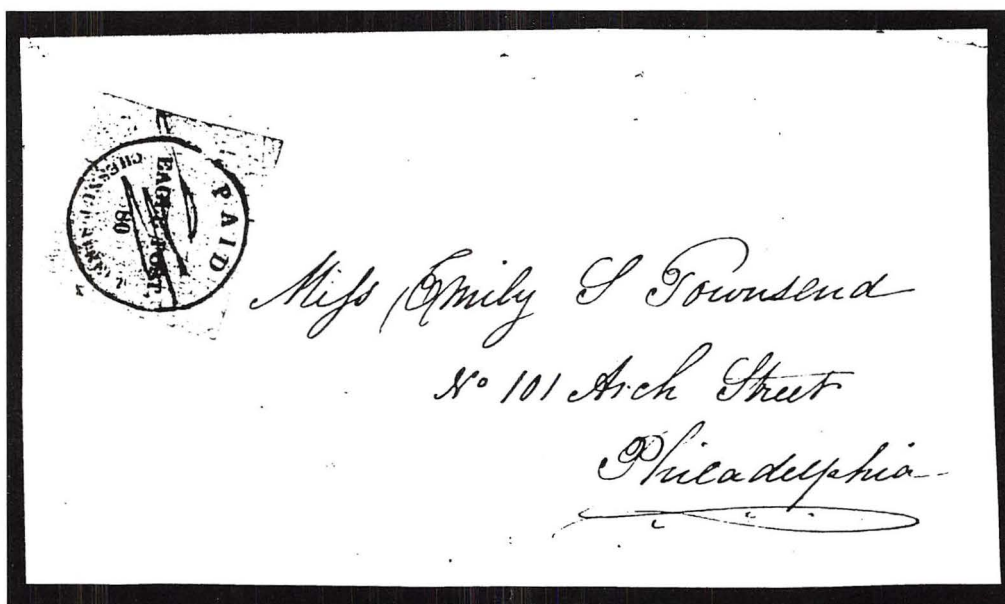 PAID
EAGLE POST,
80
CHESNUT STREET
Miss Emily S Townsend
No 101 Arch Street
Philadelphia